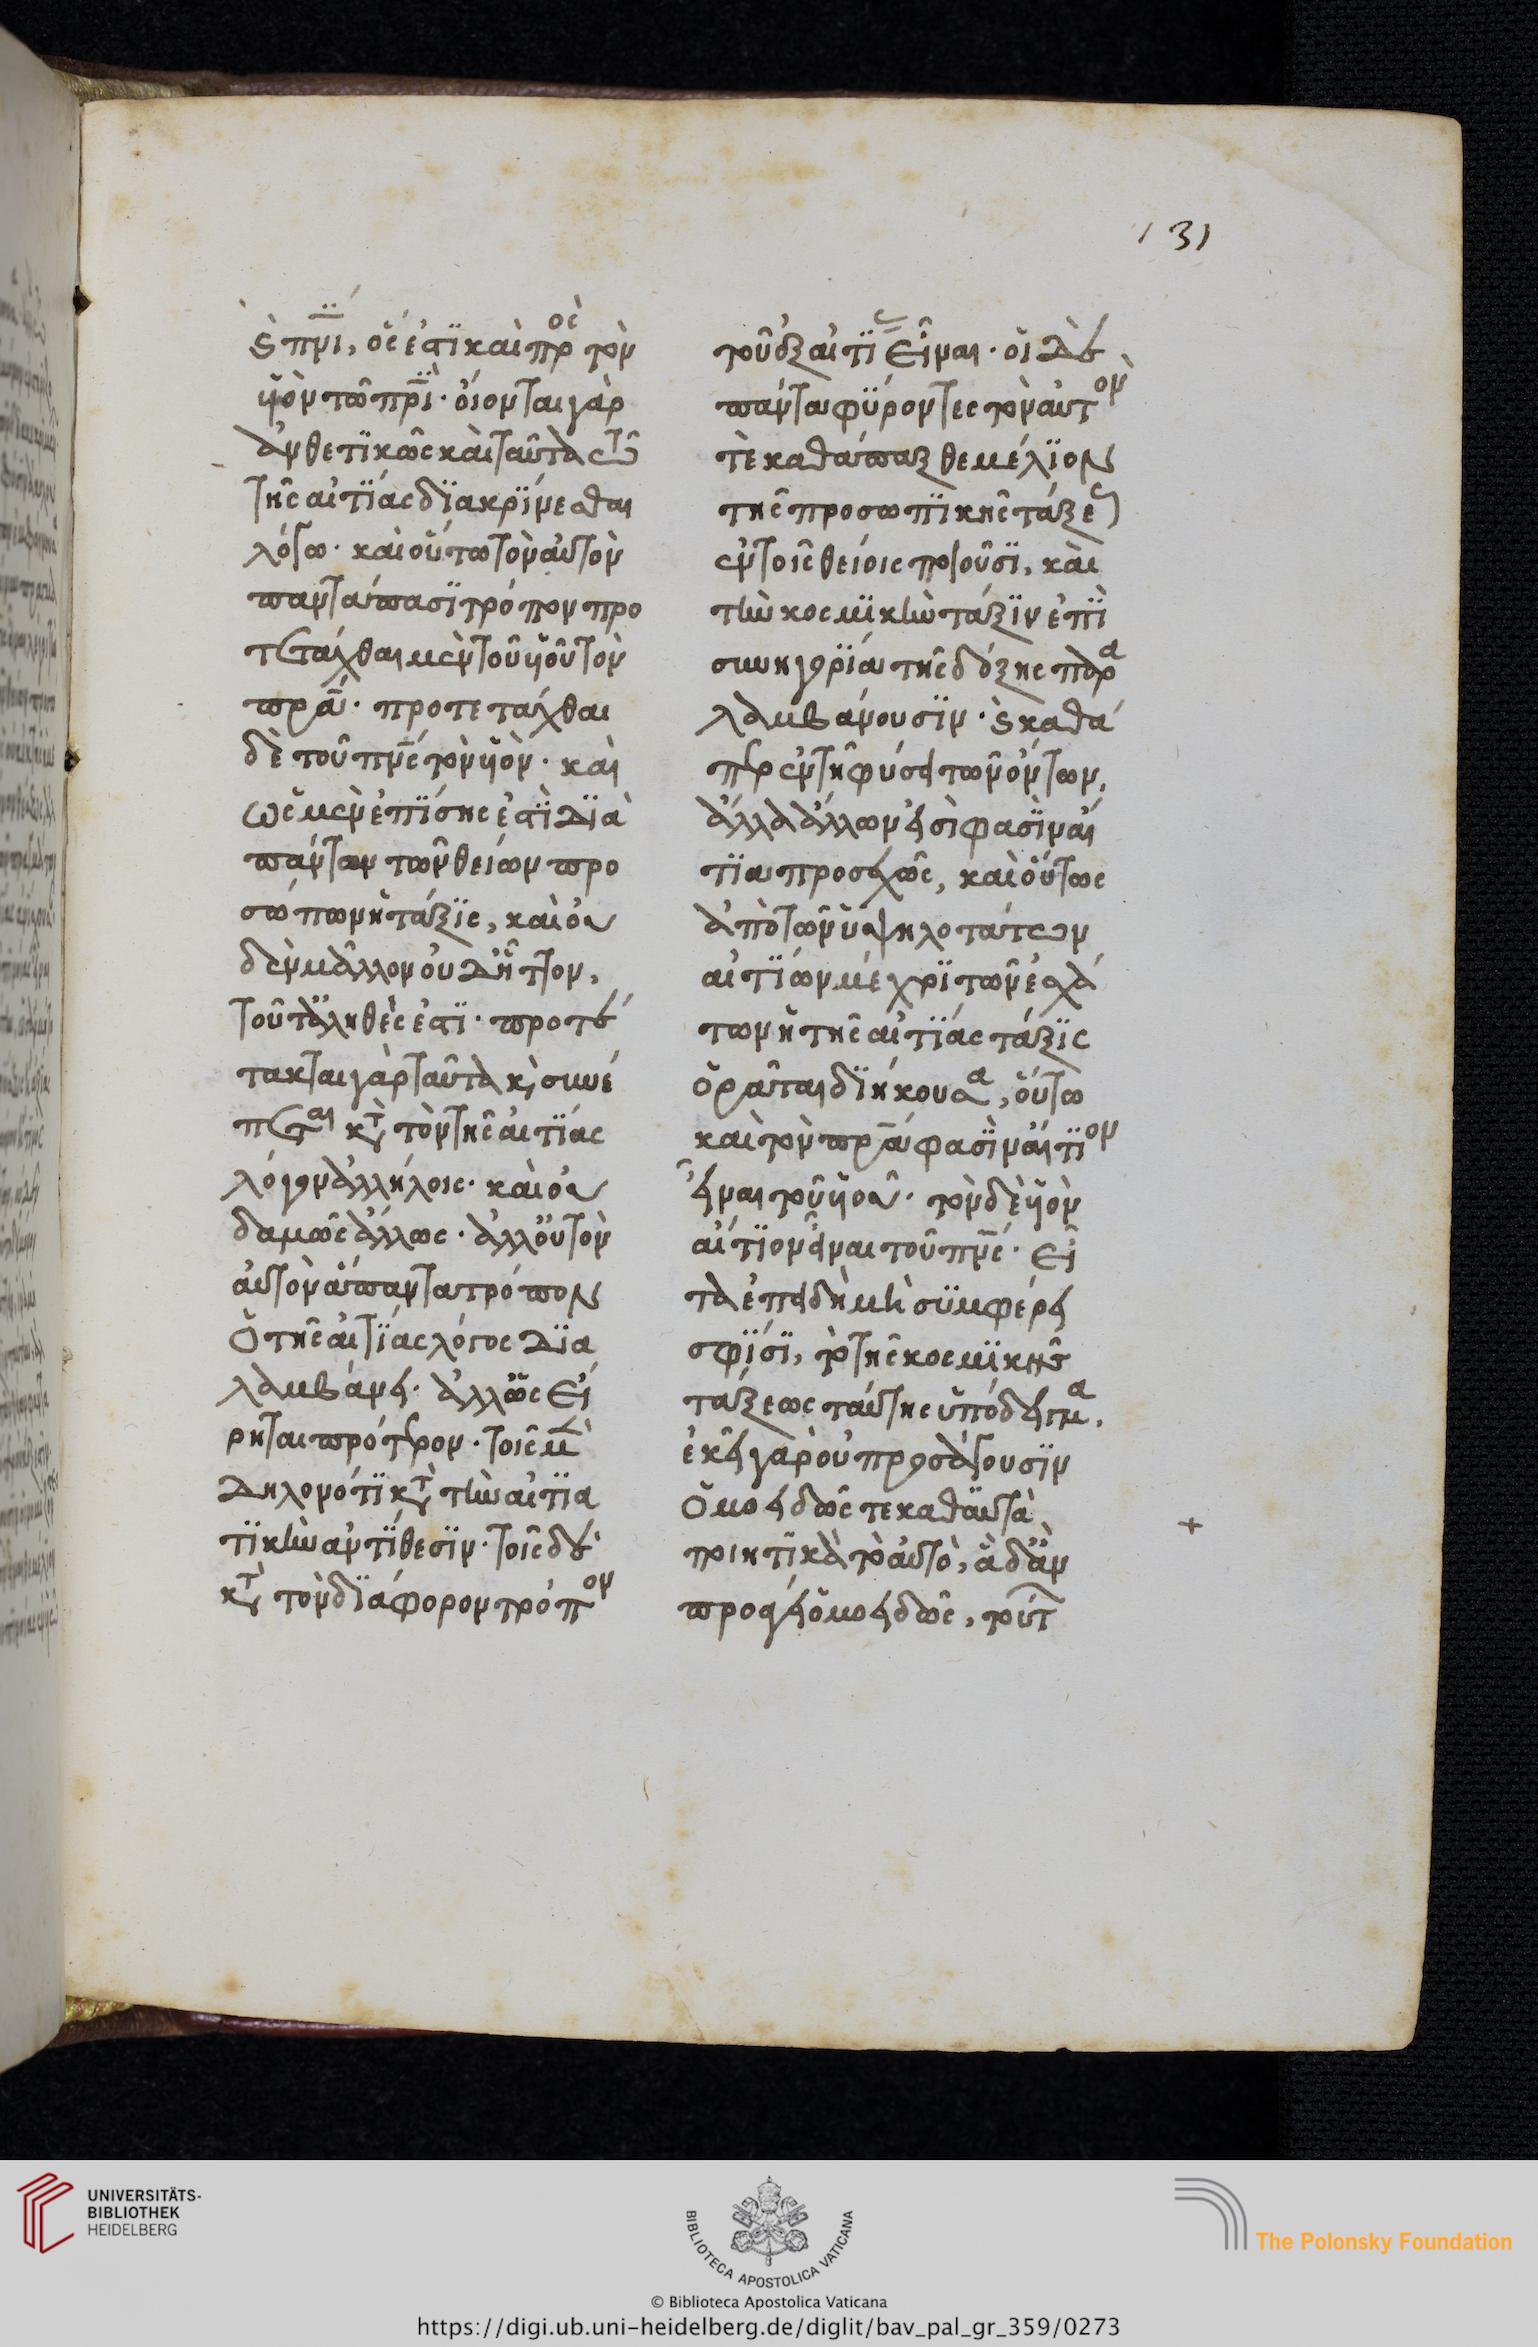 ϛ πνι, ὅς ἐστι καὶ πρὸς τὸν
υἱὸν τῶ πρι· οἴονται γὰρ
ἀνθετικῶς καὶ ταῦτα τῶ
τῆς αἰτίας διακρίνεσθαι
λόγω· καὶ οὕτω τὸν αὐτὸν
παντάπασι τρόπον προ
τετάχθαι μὲν τοῦ υἱοῦ τὸν
πρα· προτετάχθαι
δὲ τοῦ πνς τὸν υἱὸν· καὶ
ὡς μὲν ἐπίσης ἐστὶ διὰ
πάντων τῶν θείων προ
σώπων ἡ τάξις, καὶ οὐ
δὲν μᾶλλον οὐδ' ἧττον,
τοῦτ' ἀληθὲς ἐστι· προτέ
τακται γὰρ ταῦτα καὶ συνέ
πεται κατὰ τὸν τῆς αἰτίας
λόγον ἀλλήλοις· καὶ οὐ
δαμῶς ἄλλως· ἀλλ' οὐ τὸν
αὐτὸν ἅπαντα τρόπον
ὁ τῆς αἰτίας λόγος δια
λαμβάνει· ἀλλ' ὡς εἴ
ρηται πρότερον· τοῖς μὲν
δηλονότι κατὰ τὴν αἰτια
τικὴν ἀντίθεσιν· τοῖς δὲ
κατὰ τὸν διάφορον τρόπον
131
τοῦ ἐξ αἰτίας εἶναι· οἱ δὲ
πάντα φύροντες τὸν αὐτὸν
τὲ καθάπαξ θεμέλιον
τῆς προσωπικῆς τάξεως
ἐν τοῖς θείοις ποιοῦσι, καὶ
τὴν κοσμικὴν τάξιν ἐπὶ
συνηγορία τῆς δόξης παρα
λαμβάνουσιν· ϛ καθά
περ ἐν τῆ φύσει τῶν ὄντων,
ἄλλα ἄλλων εἰσὶ φασὶν αἴ
τια προσεχῶς, καὶ οὕτως
ἀπὸ τῶν ὑψηλοτάτων
αἰτίων μέχρι τῶν ἐσχά
των ἡ τῆς αἰτίας τάξις
ὁρᾶται διήκουσα, οὕτω
καὶ τὸν πρα φασὶν αἴτιον
εἶναι τοῦ υἱοῦ· τὸν δὲ υἱὸν
αἴτιον εἶναι τοῦ πνς· εἶ
τα ἐπειδὴ μὴ συμφέρει
σφίσι, τὸ τῆς κοσμικῆς
τάξεως ταύτης ὑπόδειγμα,
ἐκεῖ γὰρ οὐ προσάγουσιν
ὁμοειδῶς τε καθ' αὑτὰ
ποιητικὰ τὸ αὐτὸ, ἃ δ' ἂν
ὁμοειδῶς, τοῦτ
+
UNIVERSITÄTS-
BIBLIOTHEK
HEIDELBERG
BIBLIOTECA APOSTOLICA VATICANA
© Biblioteca Apostolica Vaticana
The Polonsky Foundation
https://digi.ub.uni-heidelberg.de/diglit/bav_pal_gr_359/0273